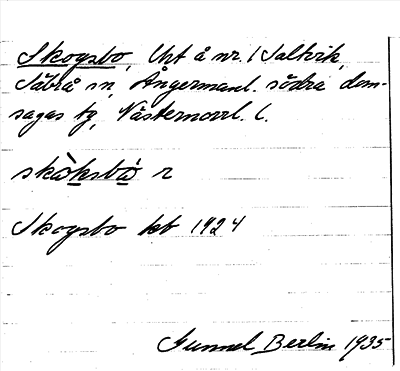 Skogsbo, Lht å nr. 1 Saltvik,
Säbrå sn, Ångermanl. södra dom-
sagas tg, Västernorrl. l.
skò̀ksbó r
Skogsbo kb 1924
Gunnel Berlin 1935